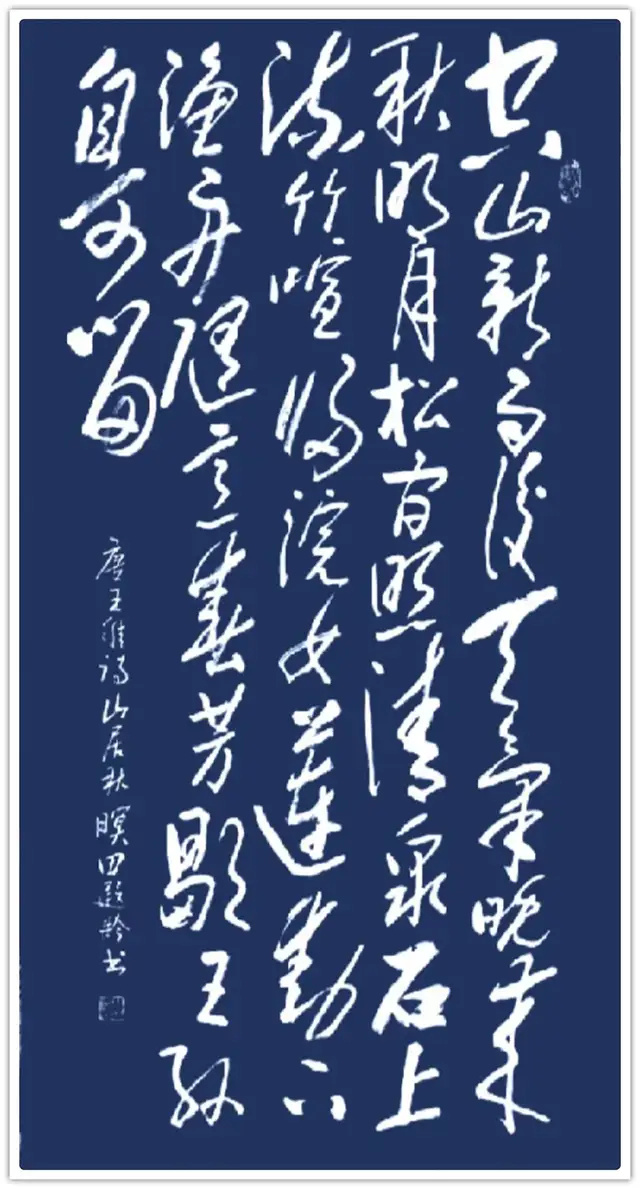 空山新雨後天氣晚來
秋明月松間照清泉石上
流竹喧歸浣女蓮動下
漁舟随意春芳歇王孫
自可留
唐王維詩山居秋暝田龄书